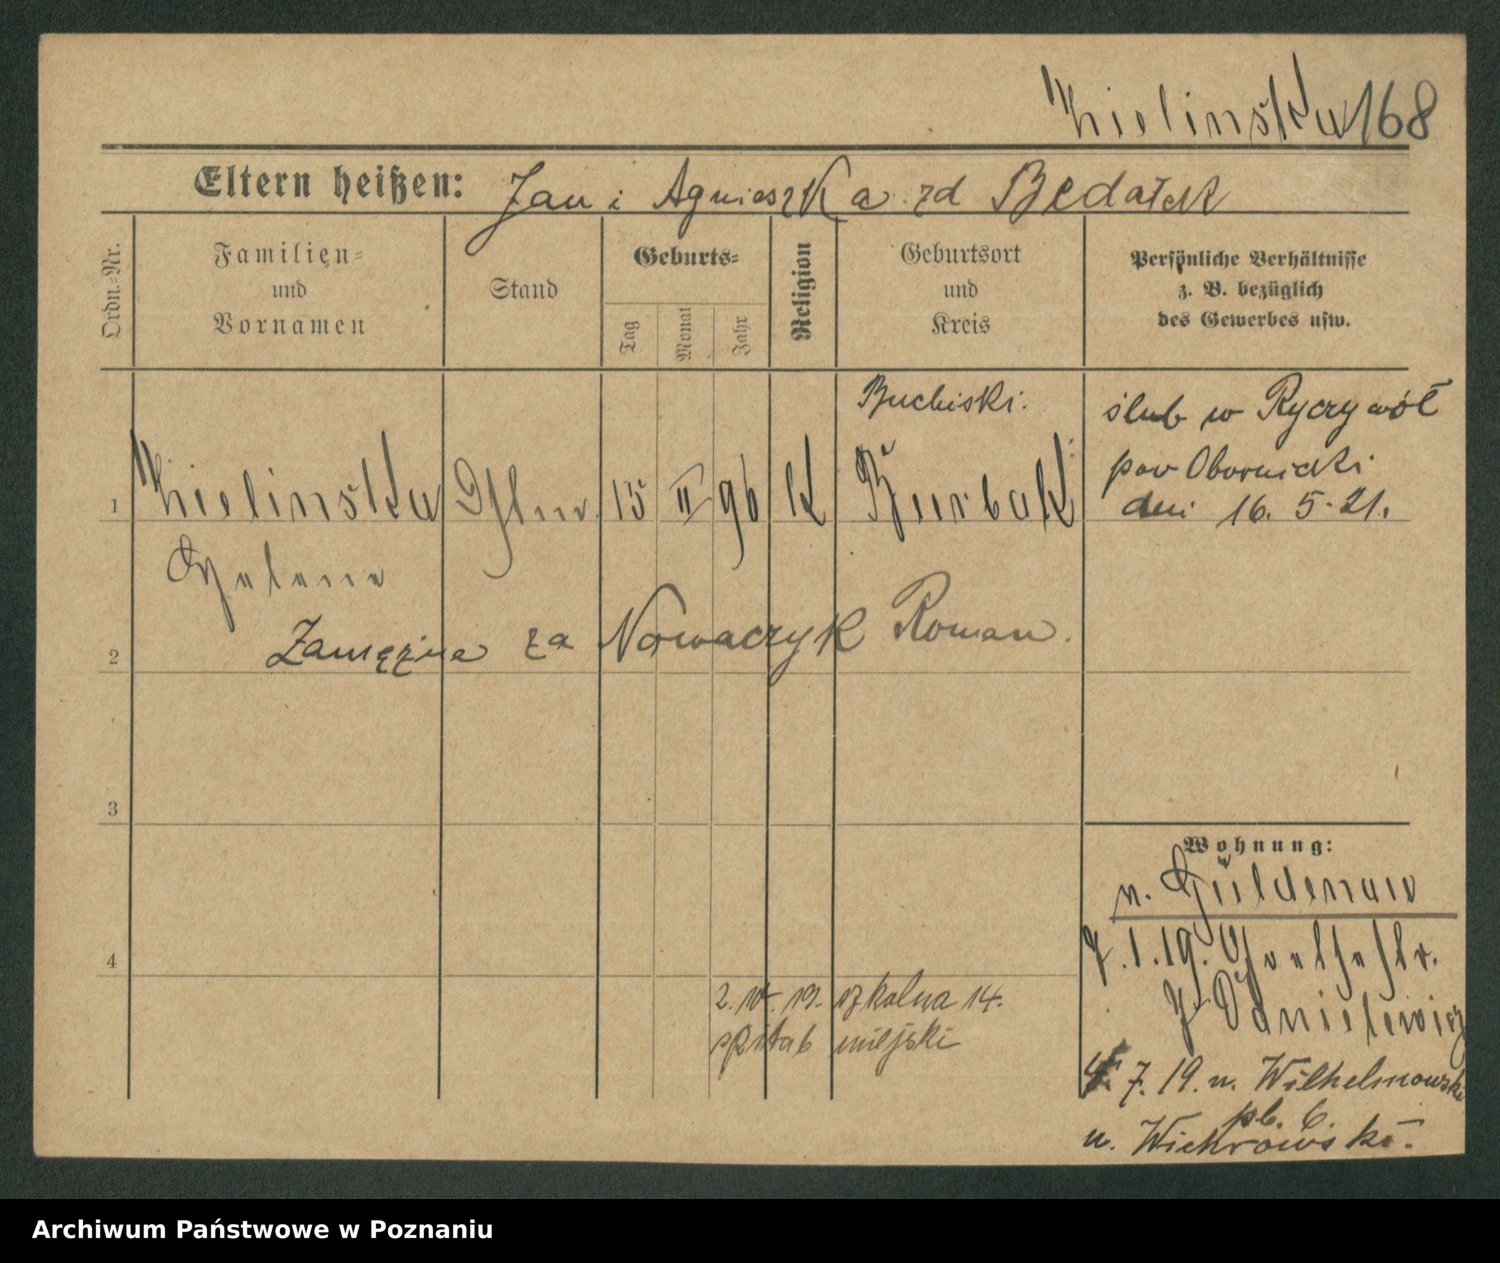 Kielinska 168
Eltern heißen: Jan i Agnieszka zd Bedałek
Ordn.-Nr.
Familien-
und
Vornamen
Stand
Geburts-
Tag
Monat
Jahr
Religion
Geburtsort
und
Kreis
Persönliche Verhältnisse
z. B. bezüglich
des Gewerbes usw.
1
Kielinska
15 II 96 K
ślub w Ryczywół
pow Obornicki
dni 16. 5. 21.
Helene
2
Zamężna za Nowaczyk Roman.
3
4
Wohnung:
n. Güldenau
7. 1. 19. Goethestr.
Danielewicz
2. 19. szkolna 14.
szpital miejski
7. 19. n. Wilhelmowski
pl. 6.
u. Wichrowski.
Archiwum Państwowe w Poznaniu